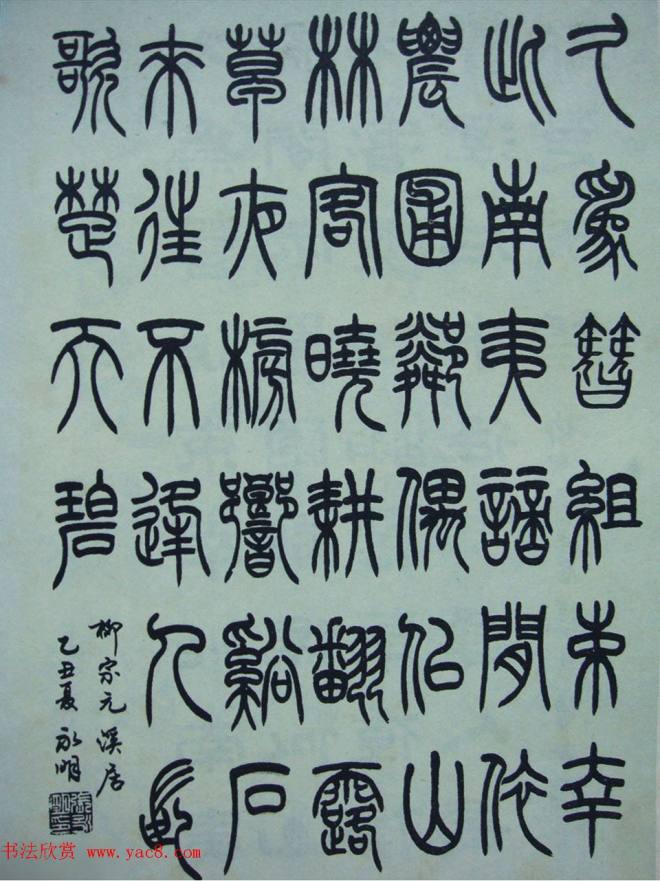 久為簪組束幸
此南夷謫閒依
農圃鄰偶似山
林客曉耕翻露
草夜榜響谿石
來往不逢人長
歌楚天碧
柳宗元溪居
乙丑夏永明
书法欣赏 www.yac8.com